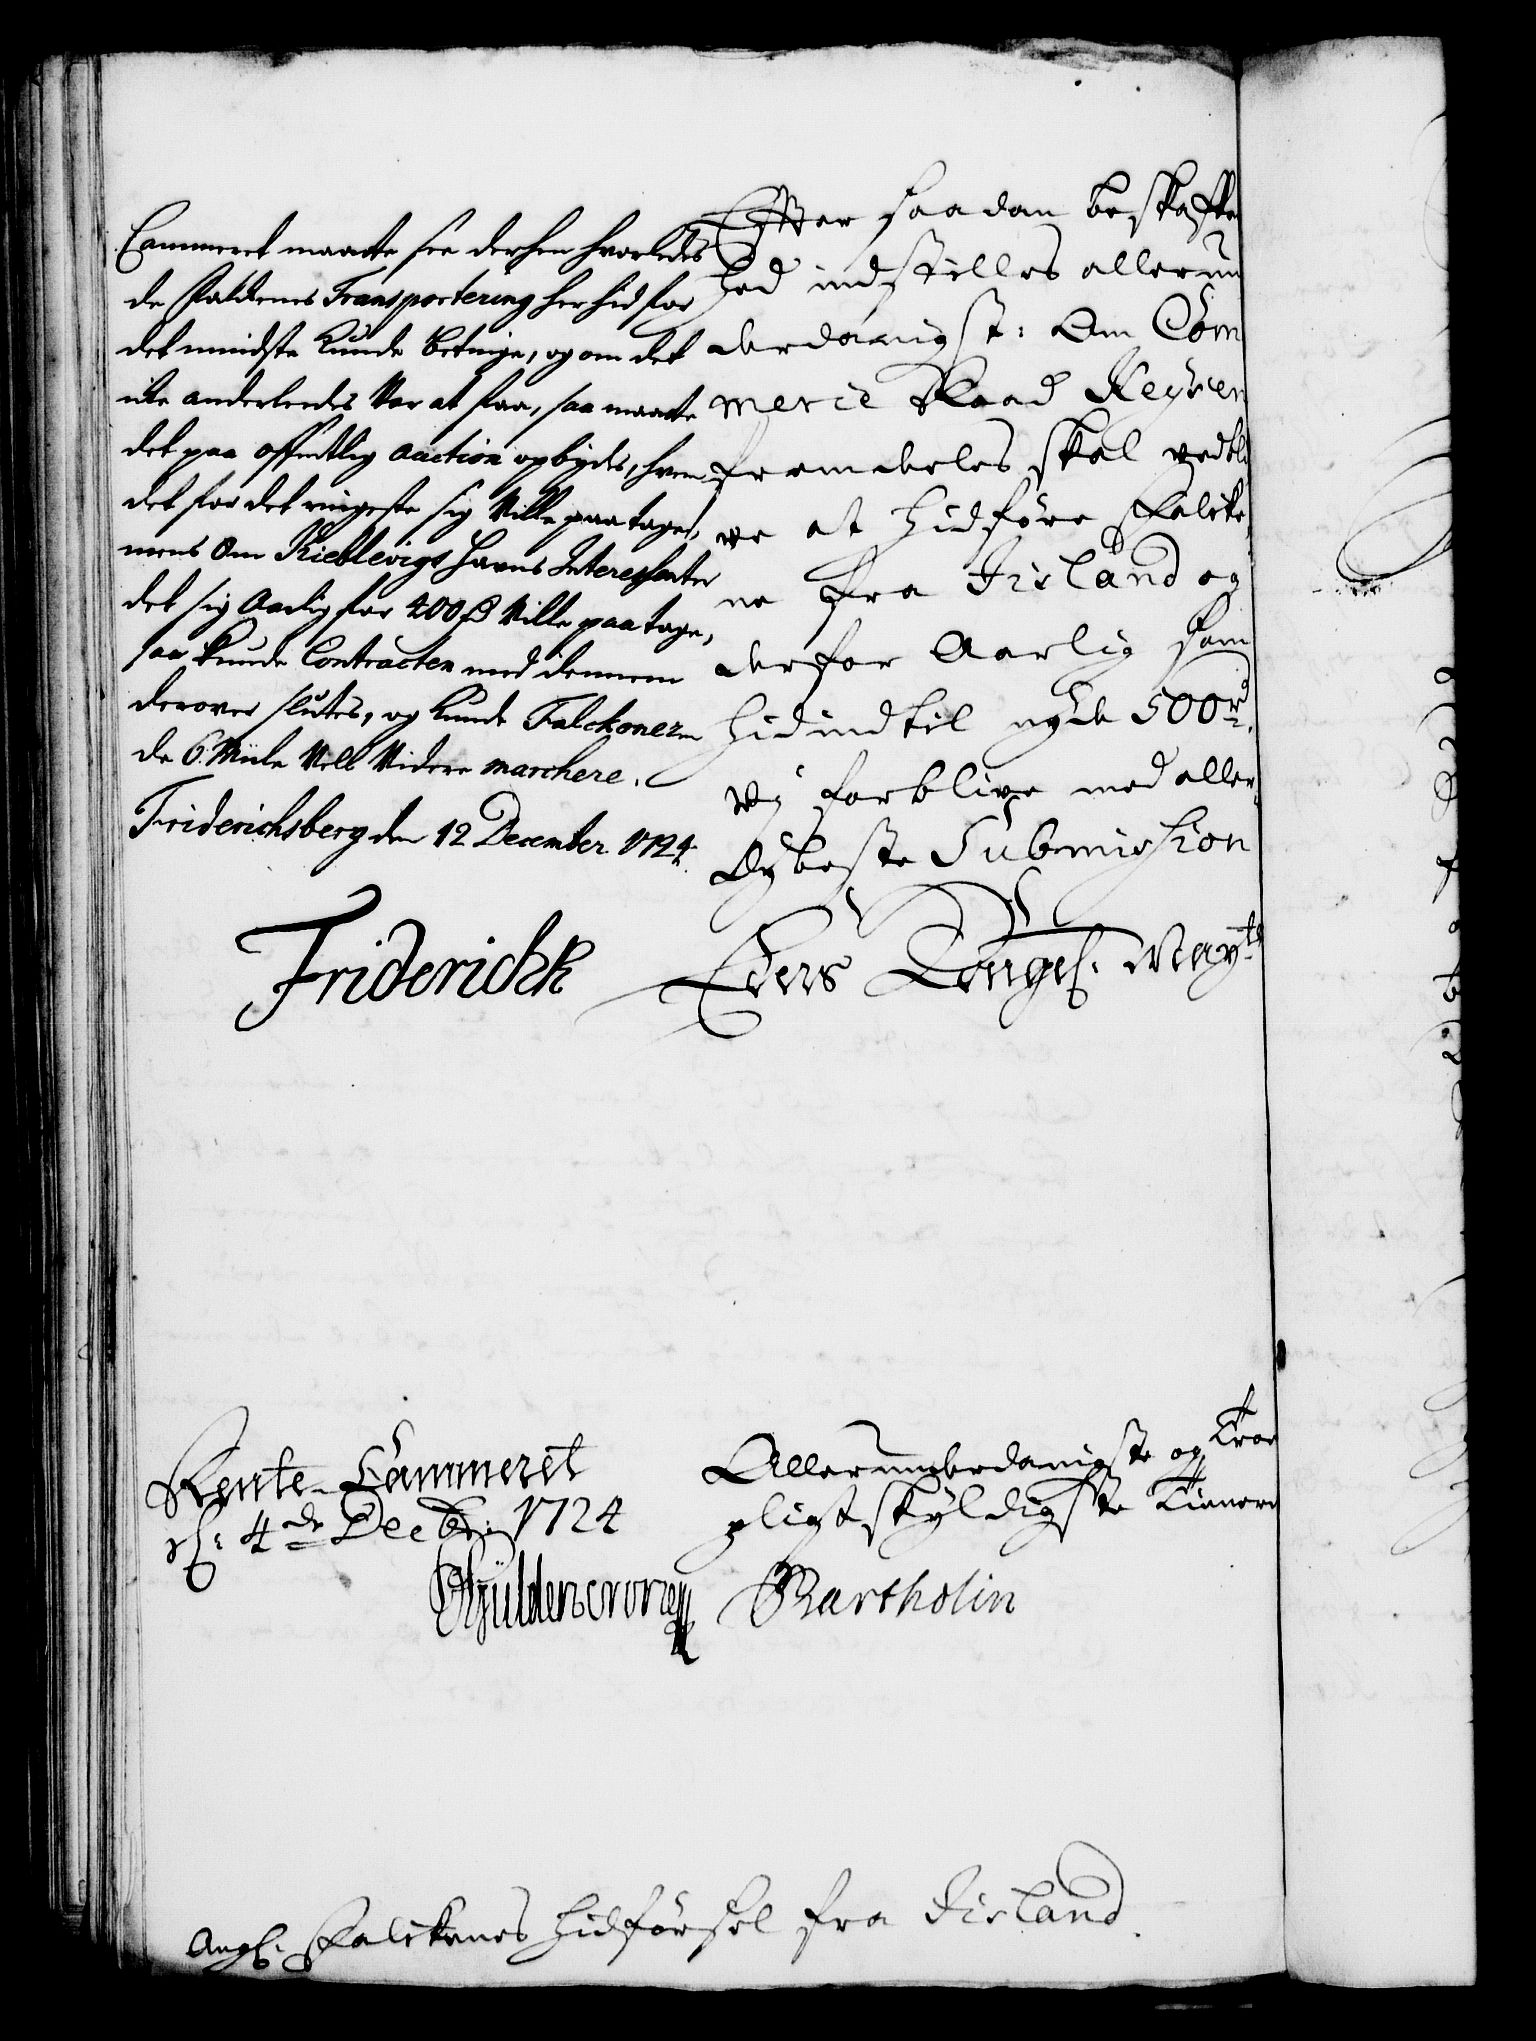 Cammeret maatte see derhen hvorledes
de Falckenes Transportering herhid for
det mindste kunde betinge, og om det
icke anderleedes var at faae, saa maatte
det paa offentlig auction opbydes, hvem
det for det ringeste sig ville paatage,
mens om Kieblevigs Havns Interessenter
det sig Aarlig for 400 rd ville paatage,
saa kunde Contracten med dennem
derover slutes, og kunde Falckonererne
de 6 Miile vell videre marchere.
Friderichsberg den 12 December 1724.
Friderich R
Efter saadan beskaffen
hed indstilles allerun
derdanigst: Om Com
mercie Raad Keysen
fremdeeles skal vedbli
ve at hidføre Falcke
ne fra Iisland og
derfor Aarlig som
hidindtil nyde 500 rd.
Vj forblive med aller
dybeste Submission
Eders Kongel. May.ts
Rente-Cammeret
d. 4de Decbr. 1724
Allerunderdanigste og Troe
pligtskyldigste Tienere
Gyldencrone
Bartholin
Ang. Falckenes hidførsel fra Iisland.